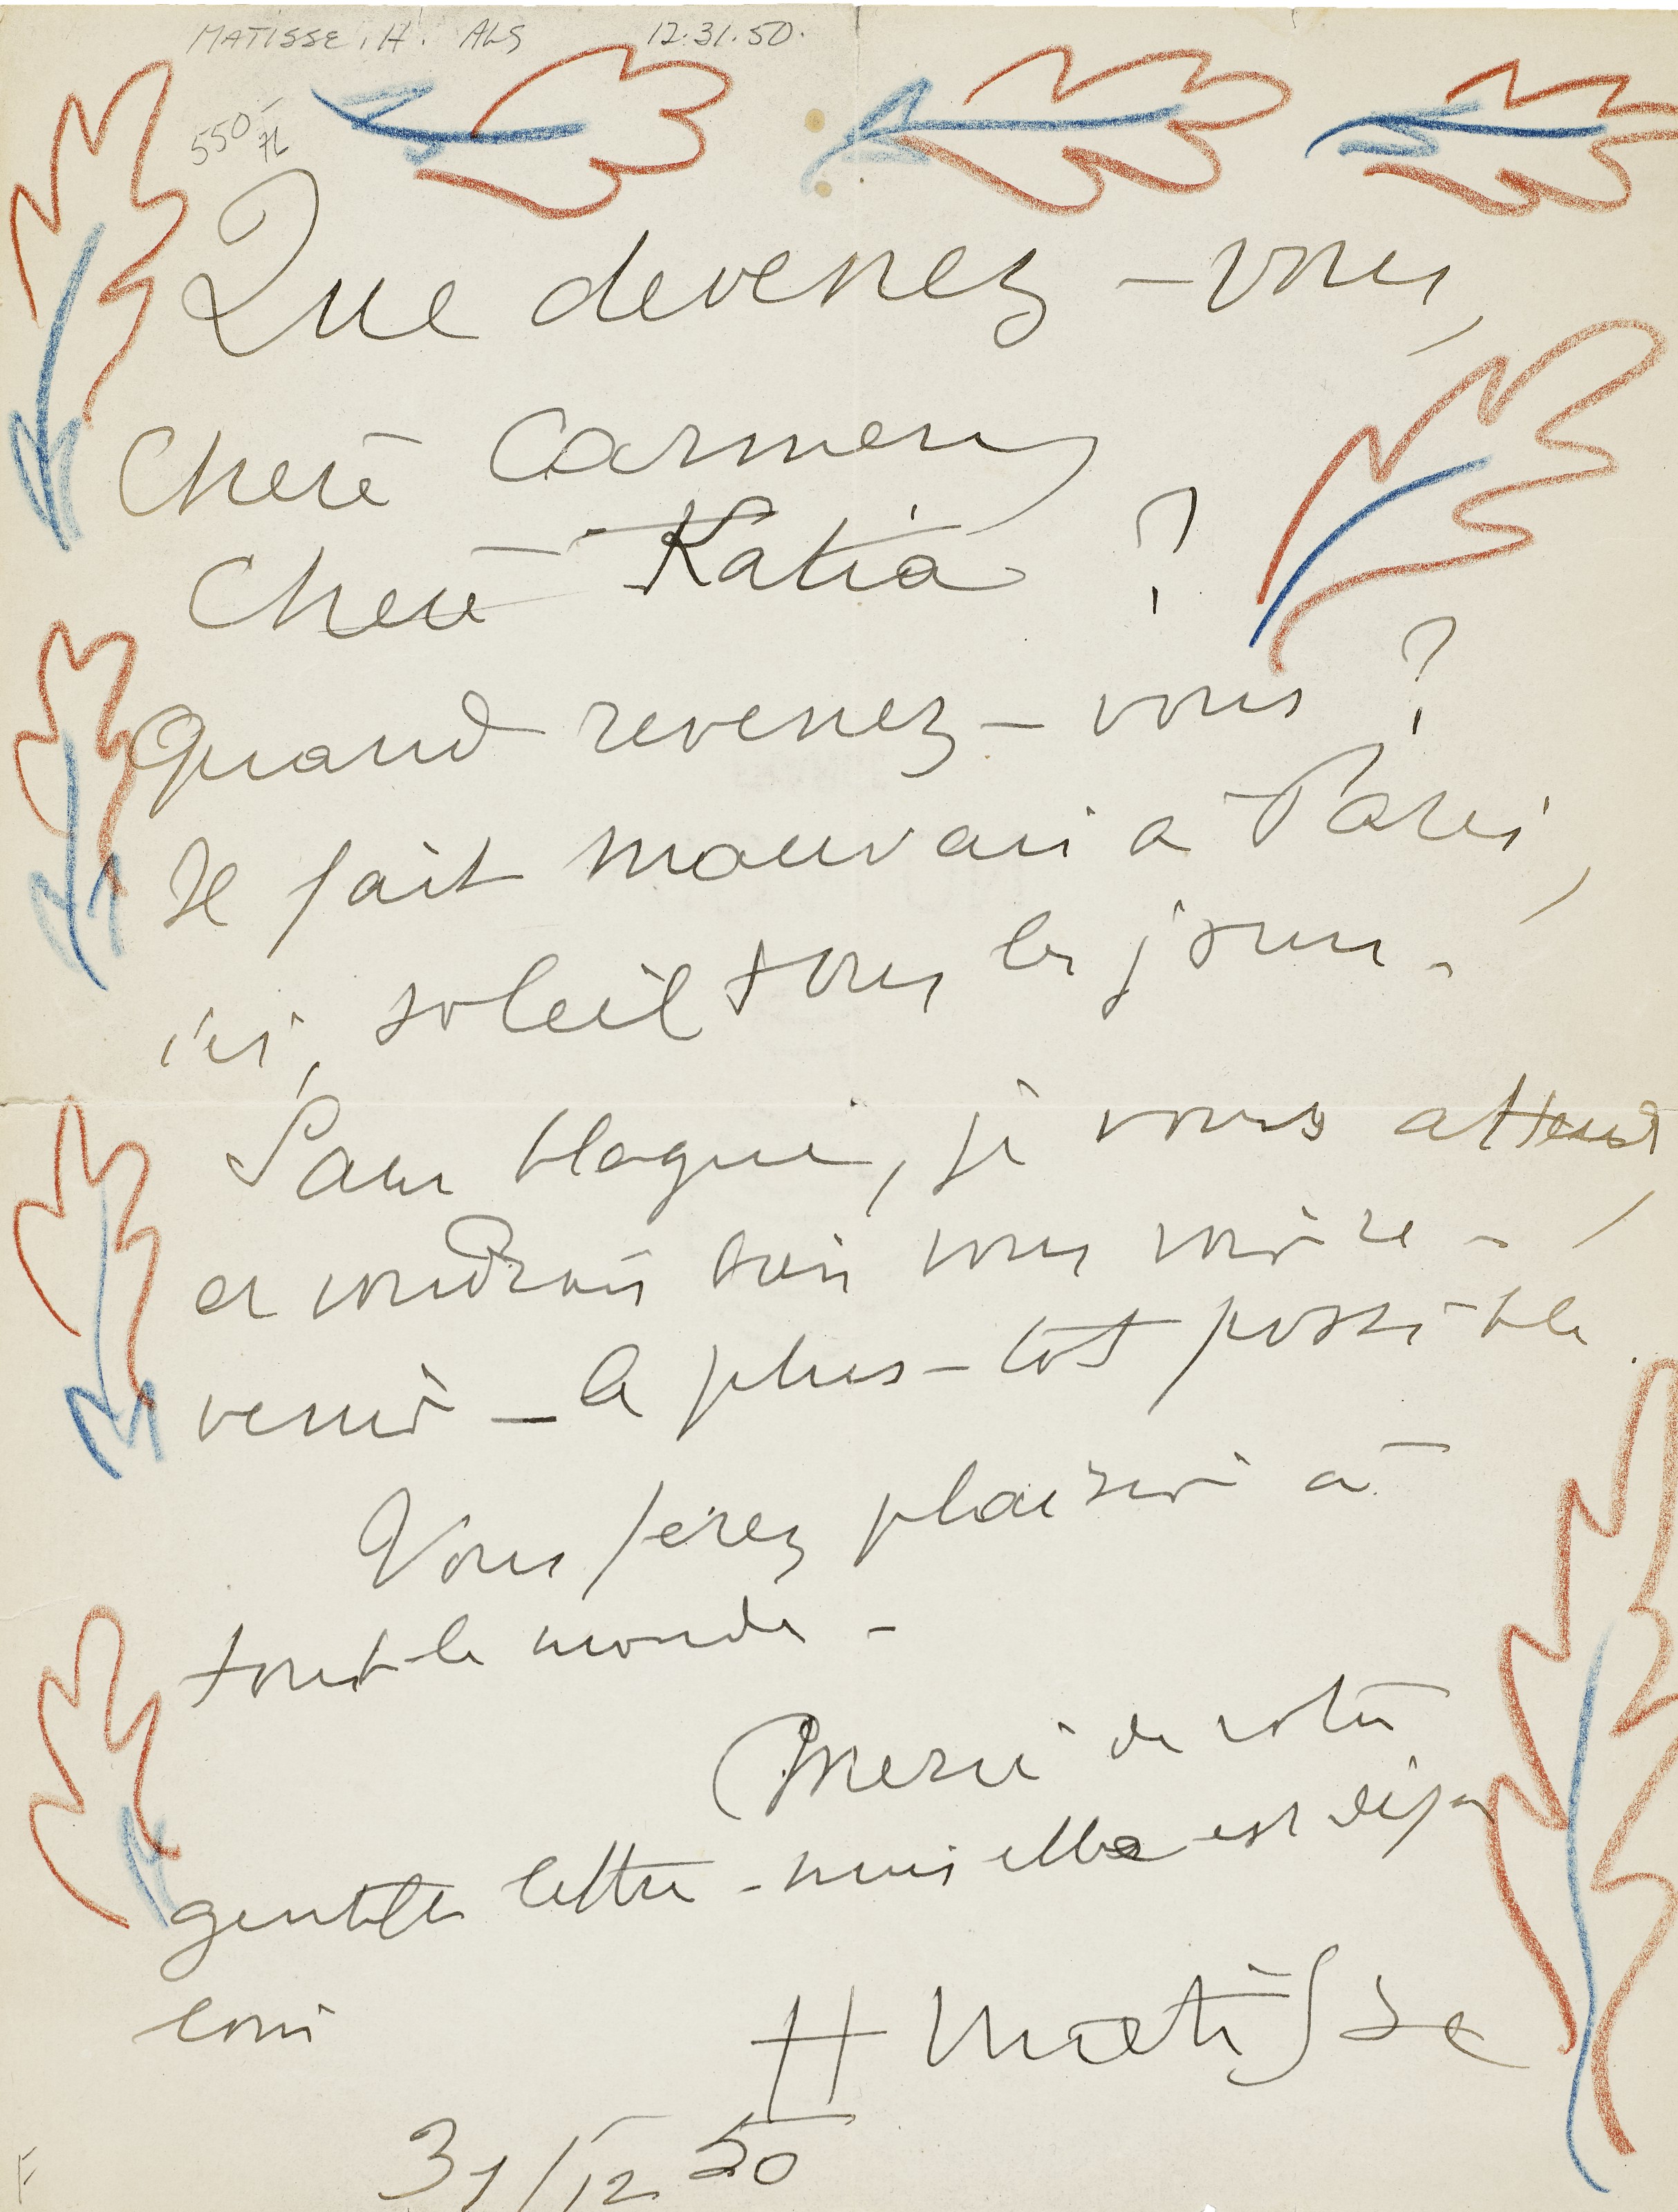 MATISSE, H. ALS 12.31.50.
550-
Que devenez-vous,
Chère Carmen
Chère Katia ?
Quand revenez-vous ?
Il fait mauvais à Paris,
ici, soleil tous les jours.
Sans blague, je vous attend,
et voudrais bien vous voire -
venir - le plus-tôt possible.
Vous ferez plaisir à
tout le monde -
Merci de votre
gentille lettre - mais elle est déjà
loin
H Matisse
31/12 50
F